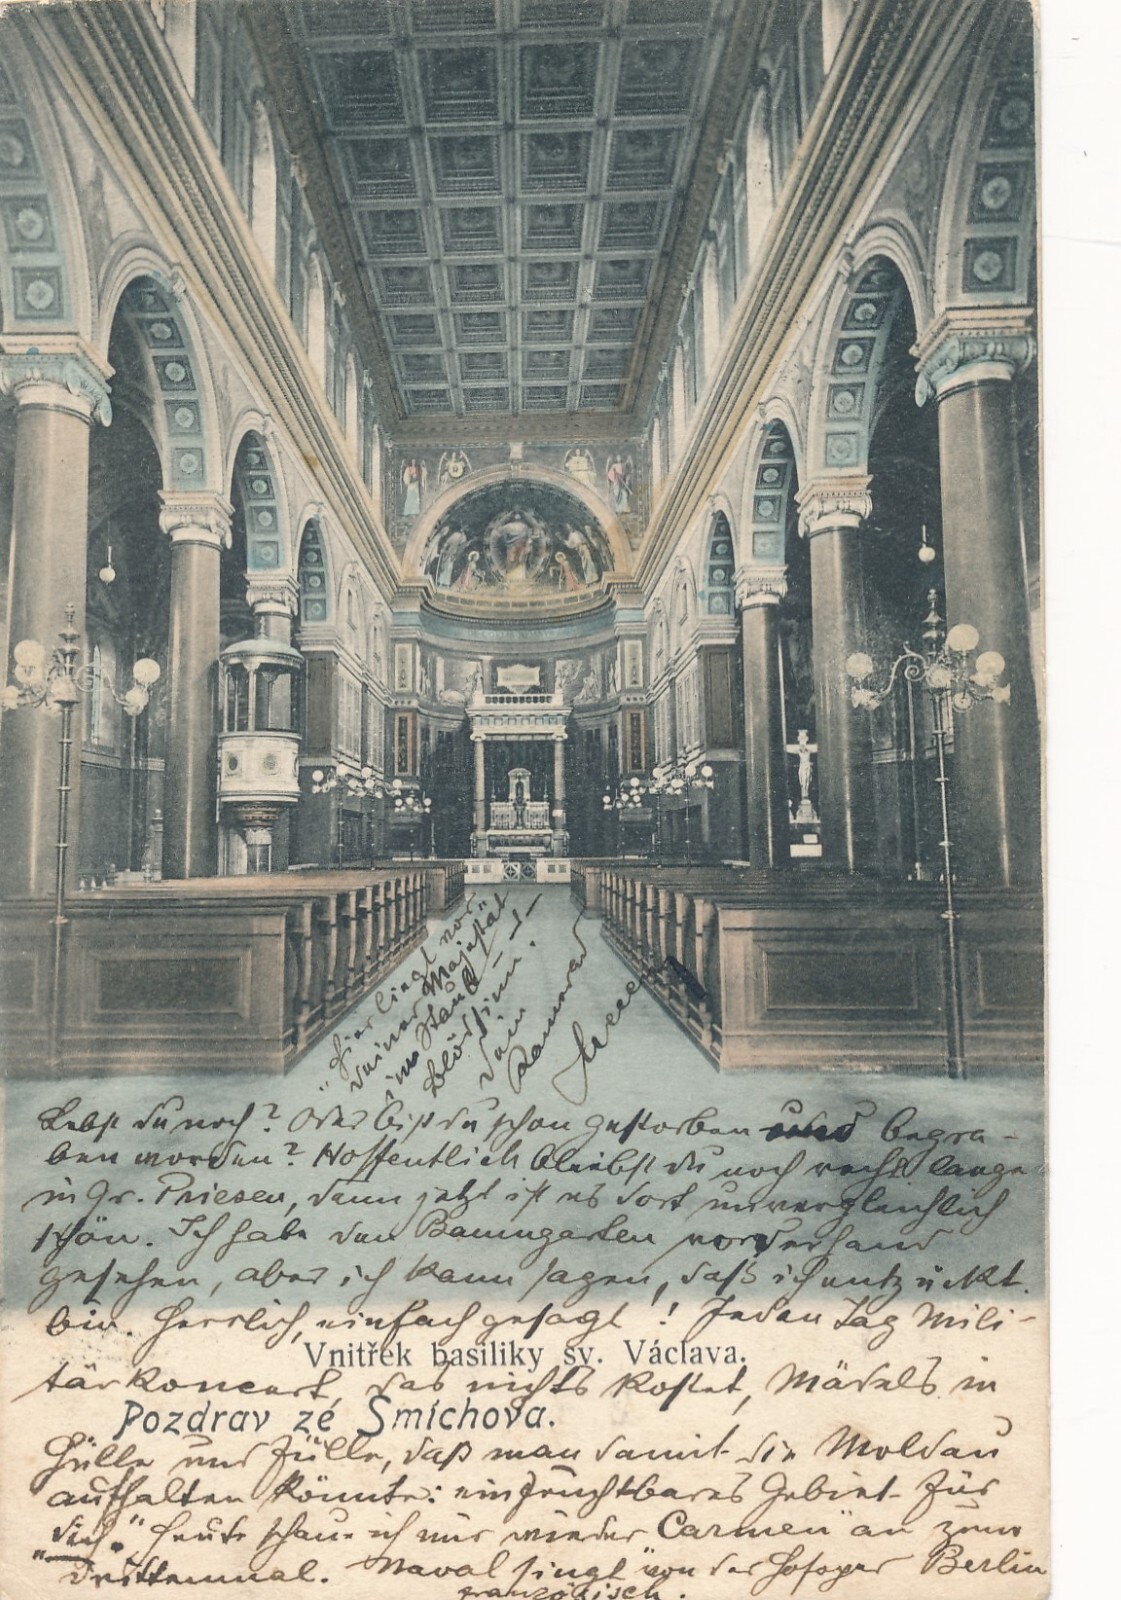 "Hier liegt vor
deiner Majestät
im Staub
Dein
Kamerad
Lebst du noch? Oder bist du schon gestorben und begra-
ben worden? Hoffentlich bleibst du noch recht lange
in Gr. Priesen, denn jetzt ist es dort unvergleichlich
schön. Ich habe den Baumgarten vorderhand
gesehen, aber ich kann sagen, daß ich entzückt
bin. Herrlich, einfach gesagt! Jeden Tag Mili-
Vnitřek basiliky sv. Václava.
tärkoncert, das nichts kostet, Mädels in
Pozdrav ze Smíchova.
Hülle und Fülle, daß man damit die Moldau
aufhalten könnte: ein fruchtbares Gebiet für
"dich." Heute schaue ich mir wieder "Carmen" an zum
drittenmal. Naval singt von der Hofoper Berlin
französisch.